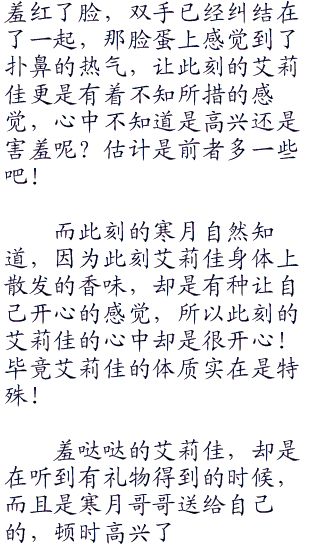 羞红了脸，双手已经纠结在
了一起，那脸蛋上感觉到了
扑鼻的热气，让此刻的艾莉
佳更是有着不知所措的感
觉，心中不知道是高兴还是
害羞呢？估计是前者多一些
吧！
而此刻的寒月自然知
道，因为此刻艾莉佳身体上
散发的香味，却是有种让自
己开心的感觉，所以此刻的
艾莉佳的心中却是很开心！
毕竟艾莉佳的体质实在是特
殊！
羞哒哒的艾莉佳，却是
在听到有礼物得到的时候，
而且是寒月哥哥送给自己
的，顿时高兴了